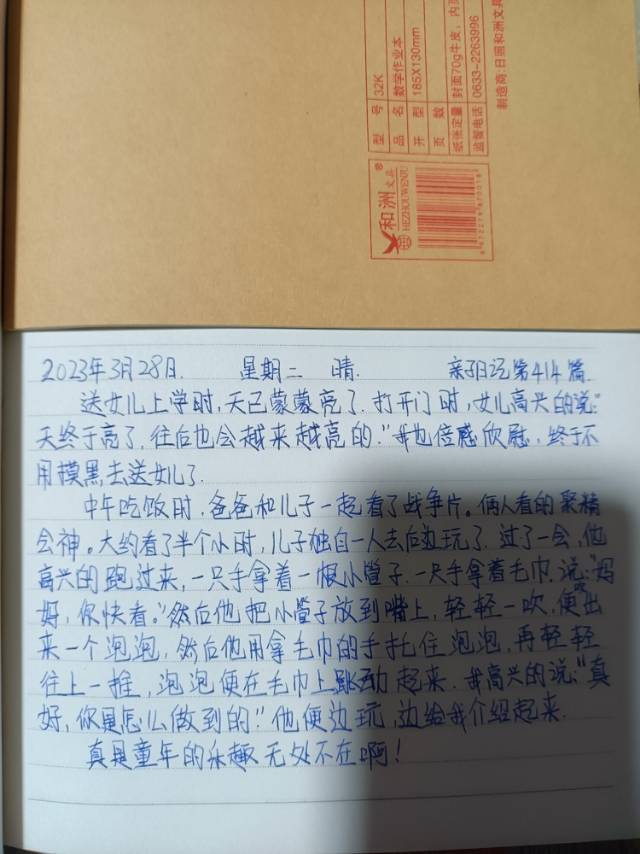 型 号 32K
品 名 数学作业本
开 型 185X130mm
页 数
纸张定量 封面70g牛皮，内页
监督电话 0633-2263996
制造商:日照和洲文具
和洲文具®
HEZHOUWENJU
2023年3月28日. 星期二 晴. 亲子日记第414篇.
送女儿上学时,天已蒙蒙亮了.打开门时,女儿高兴的说:“
天终于亮了.往后也会越来越亮的.”我也倍感欣慰.终于不
用摸黑去送女儿了.
中午吃饭时.爸爸和儿子一起看了战争片。俩人看的聚精
会神。大约看了半个小时,儿子独自一人去后边玩了.过了一会,他
高兴的跑过来,一只手拿着一根小管子.一只手拿着毛巾.说:“妈
妈,你快看。”然后他把小管子放到嘴上,轻轻一吹,便出
来一个泡泡,然后他用拿毛巾的手托住泡泡,再轻轻
往上一推,泡泡便在毛巾上跳动起来.我高兴的说:“真
好,你是怎么做到的.”他便边玩,边给我介绍起来.
真是童年的乐趣无处不在啊!